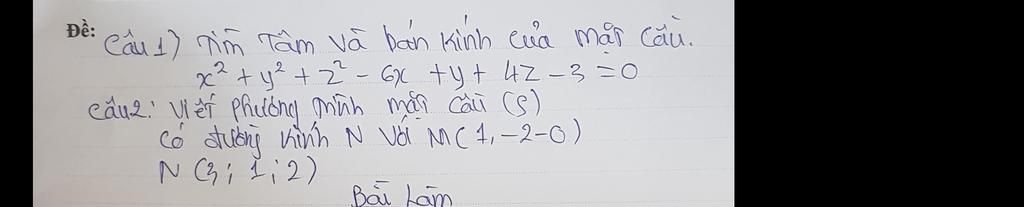 Đề: Câu 1) Tìm Tâm và bán kính của mặt cầu.
x² + y² + z² - 6x + y + 4z - 3 = 0
Câu 2: Viết phương trình mặt cầu (S)
có đường kính N với M(1, -2 - 0)
N (3; 1; 2)
Bài Làm